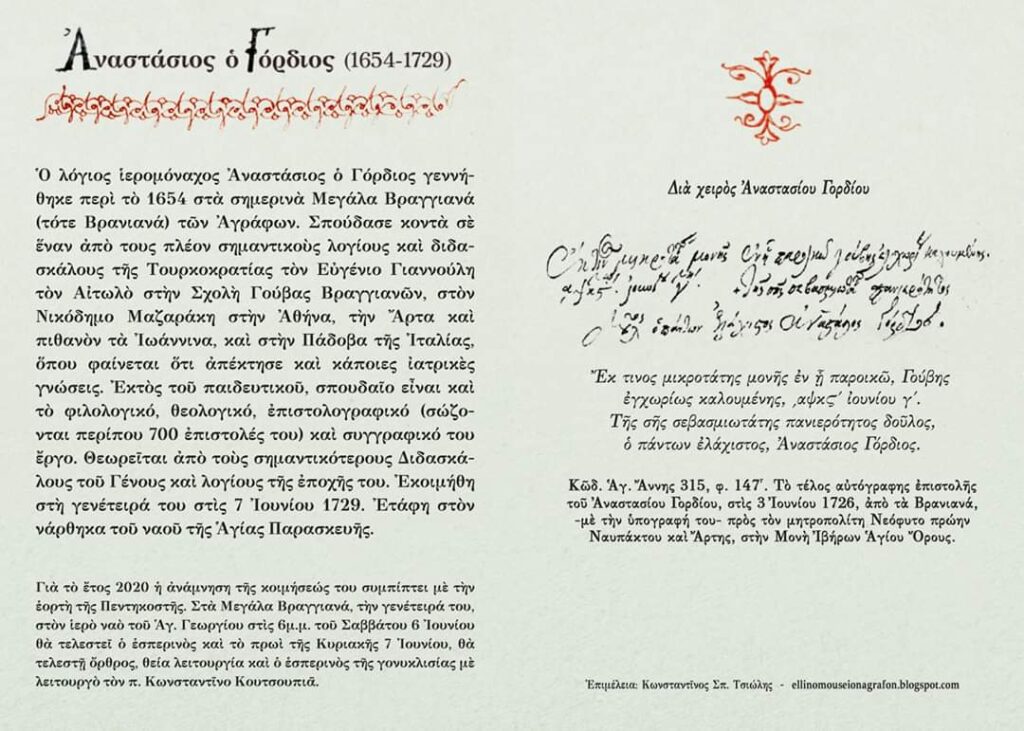 Ἀναστάσιος ὁ Γόρδιος (1654-1729)
Ὁ λόγιος ἱερομόναχος Ἀναστάσιος ὁ Γόρδιος γεννή-
θηκε περὶ τὸ 1654 στὰ σημερινὰ Μεγάλα Βραγγιανά
(τότε Βρανιανά) τῶν Ἀγράφων. Σπούδασε κοντὰ σὲ
ἕναν ἀπὸ τους πλέον σημαντικοὺς λογίους καὶ διδα-
σκάλους τῆς Τουρκοκρατίας τὸν Εὐγένιο Γιαννούλη
τὸν Αἰτωλὸ στὴν Σχολὴ Γούβας Βραγγιανῶν, στὸν
Νικόδημο Μαζαράκη στὴν Ἀθήνα, τὴν Ἄρτα καὶ
πιθανὸν τὰ Ἰωάννινα, καὶ στὴν Πάδοβα τῆς Ἰταλίας,
ὅπου φαίνεται ὅτι ἀπέκτησε καὶ κάποιες ἰατρικὲς
γνώσεις. Ἐκτὸς τοῦ παιδευτικοῦ, σπουδαῖο εἶναι καὶ
τὸ φιλολογικό, θεολογικό, ἐπιστολογραφικό (σώζο-
νται περίπου 700 ἐπιστολές του) καὶ συγγραφικό του
ἔργο. Θεωρεῖται ἀπὸ τοὺς σημαντικότερους Διδασκά-
λους τοῦ Γένους καὶ λογίους τῆς ἐποχῆς του. Ἐκοιμήθη
στὴ γενέτειρά του στὶς 7 Ἰουνίου 1729. Ἐτάφη στὸν
νάρθηκα τοῦ ναοῦ τῆς Ἁγίας Παρασκευῆς.
Γιὰ τὸ ἔτος 2020 ἡ ἀνάμνηση τῆς κοιμήσεώς του συμπίπτει μὲ τὴν
ἑορτὴ τῆς Πεντηκοστῆς. Στὰ Μεγάλα Βραγγιανά, τὴν γενέτειρά του,
στὸν ἱερὸ ναὸ τοῦ Ἁγ. Γεωργίου στὶς 6μ.μ. τοῦ Σαββάτου 6 Ἰουνίου
θὰ τελεστεῖ ὁ ἑσπερινὸς καὶ τὸ πρωὶ τῆς Κυριακῆς 7 Ἰουνίου, θὰ
τελεστῇ ὄρθρος, θεία λειτουργία καὶ ὁ ἑσπερινὸς τῆς γονυκλισίας μὲ
λειτουργὸ τὸν π. Κωνσταντῖνο Κουτσουπιᾶ.
Διὰ χειρὸς Ἀναστασίου Γορδίου
Ἔκ τινος μικροτάτης μονῆς ἐν ᾗ παροικῶ, Γούβης
ἐγχωρίως καλουμένης, ͵αψκϛʹ ἰουνίου γʹ.
Τῆς σῆς σεβασμιωτάτης πανιερότητος δοῦλος,
ὁ πάντων ἐλάχιστος, Ἀναστάσιος Γόρδιος.
Κῶδ. Ἁγ. Ἄννης 315, φ. 147ʳ. Τὸ τέλος αὐτόγραφης ἐπιστολῆς
τοῦ Ἀναστασίου Γορδίου, στὶς 3 Ἰουνίου 1726, ἀπὸ τὰ Βρανιανά,
-μὲ τὴν ὑπογραφή του- πρὸς τὸν μητροπολίτη Νεόφυτο πρώην
Ναυπάκτου καὶ Ἄρτης, στὴν Μονὴ Ἰβήρων Ἁγίου Ὄρους.
Ἐπιμέλεια: Κωνσταντῖνος Σπ. Τσιώλης - ellinomouseionagrafon.blogspot.com